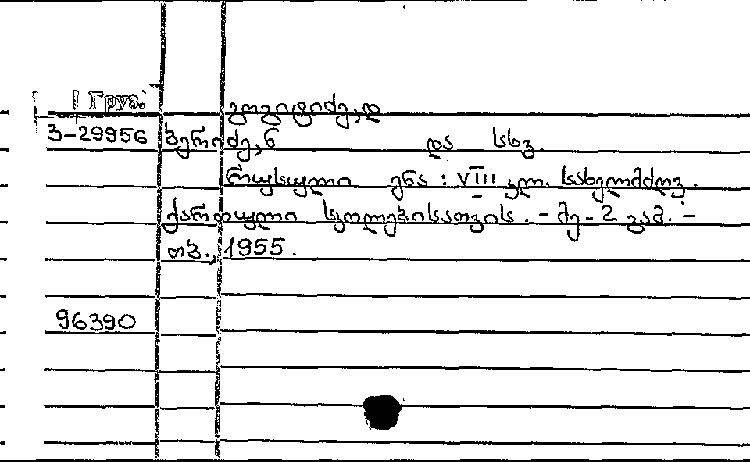 Груз.
გოგიტიძე, დ
3-29956 ბერიძე, ნ და სხვ.
რუსული ენა : VIII კლ. სახელმძღვ.
ქართული სკოლებისათვის. - მე-2 გამ. -
თბ., 1955.
96390